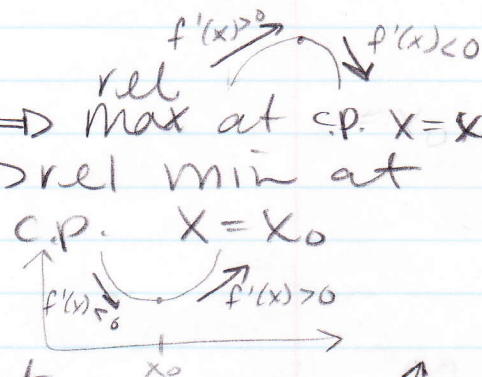 f'(x)>0 f'(x)<0
rel
⇒ max at c.p. x=x
rel min at
c.p. x=x₀
f'(x)<0 f'(x)>0
x₀